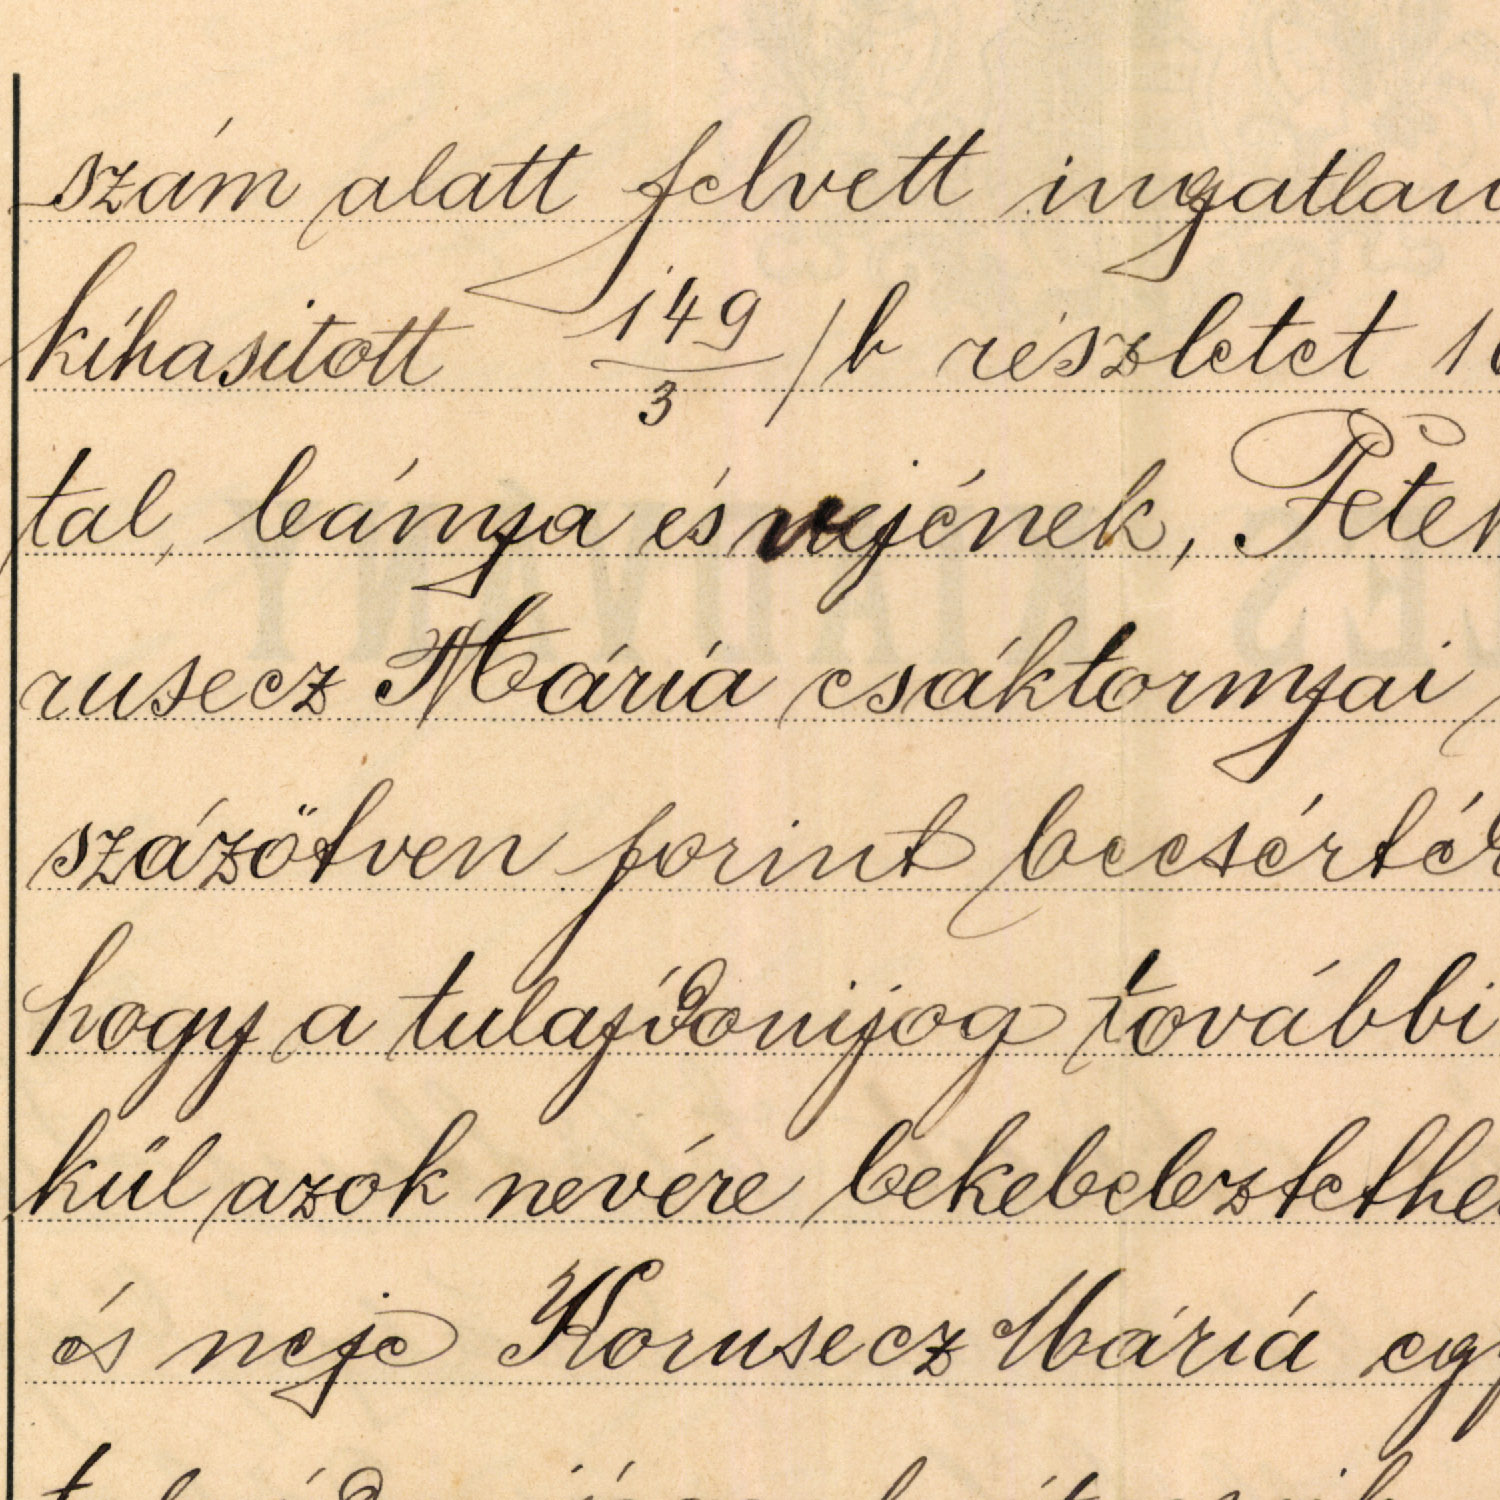 szám alatt felvett ingatlan
kihasitott 149/3 /b részletet
tal, leánya és vejének, Peter
rusecz Mária csáktornyai
százötven forint becsérték
hogy a tulajdonijog további
kül azok nevére bekebeleztethe
és neje Korusecz Mária egy